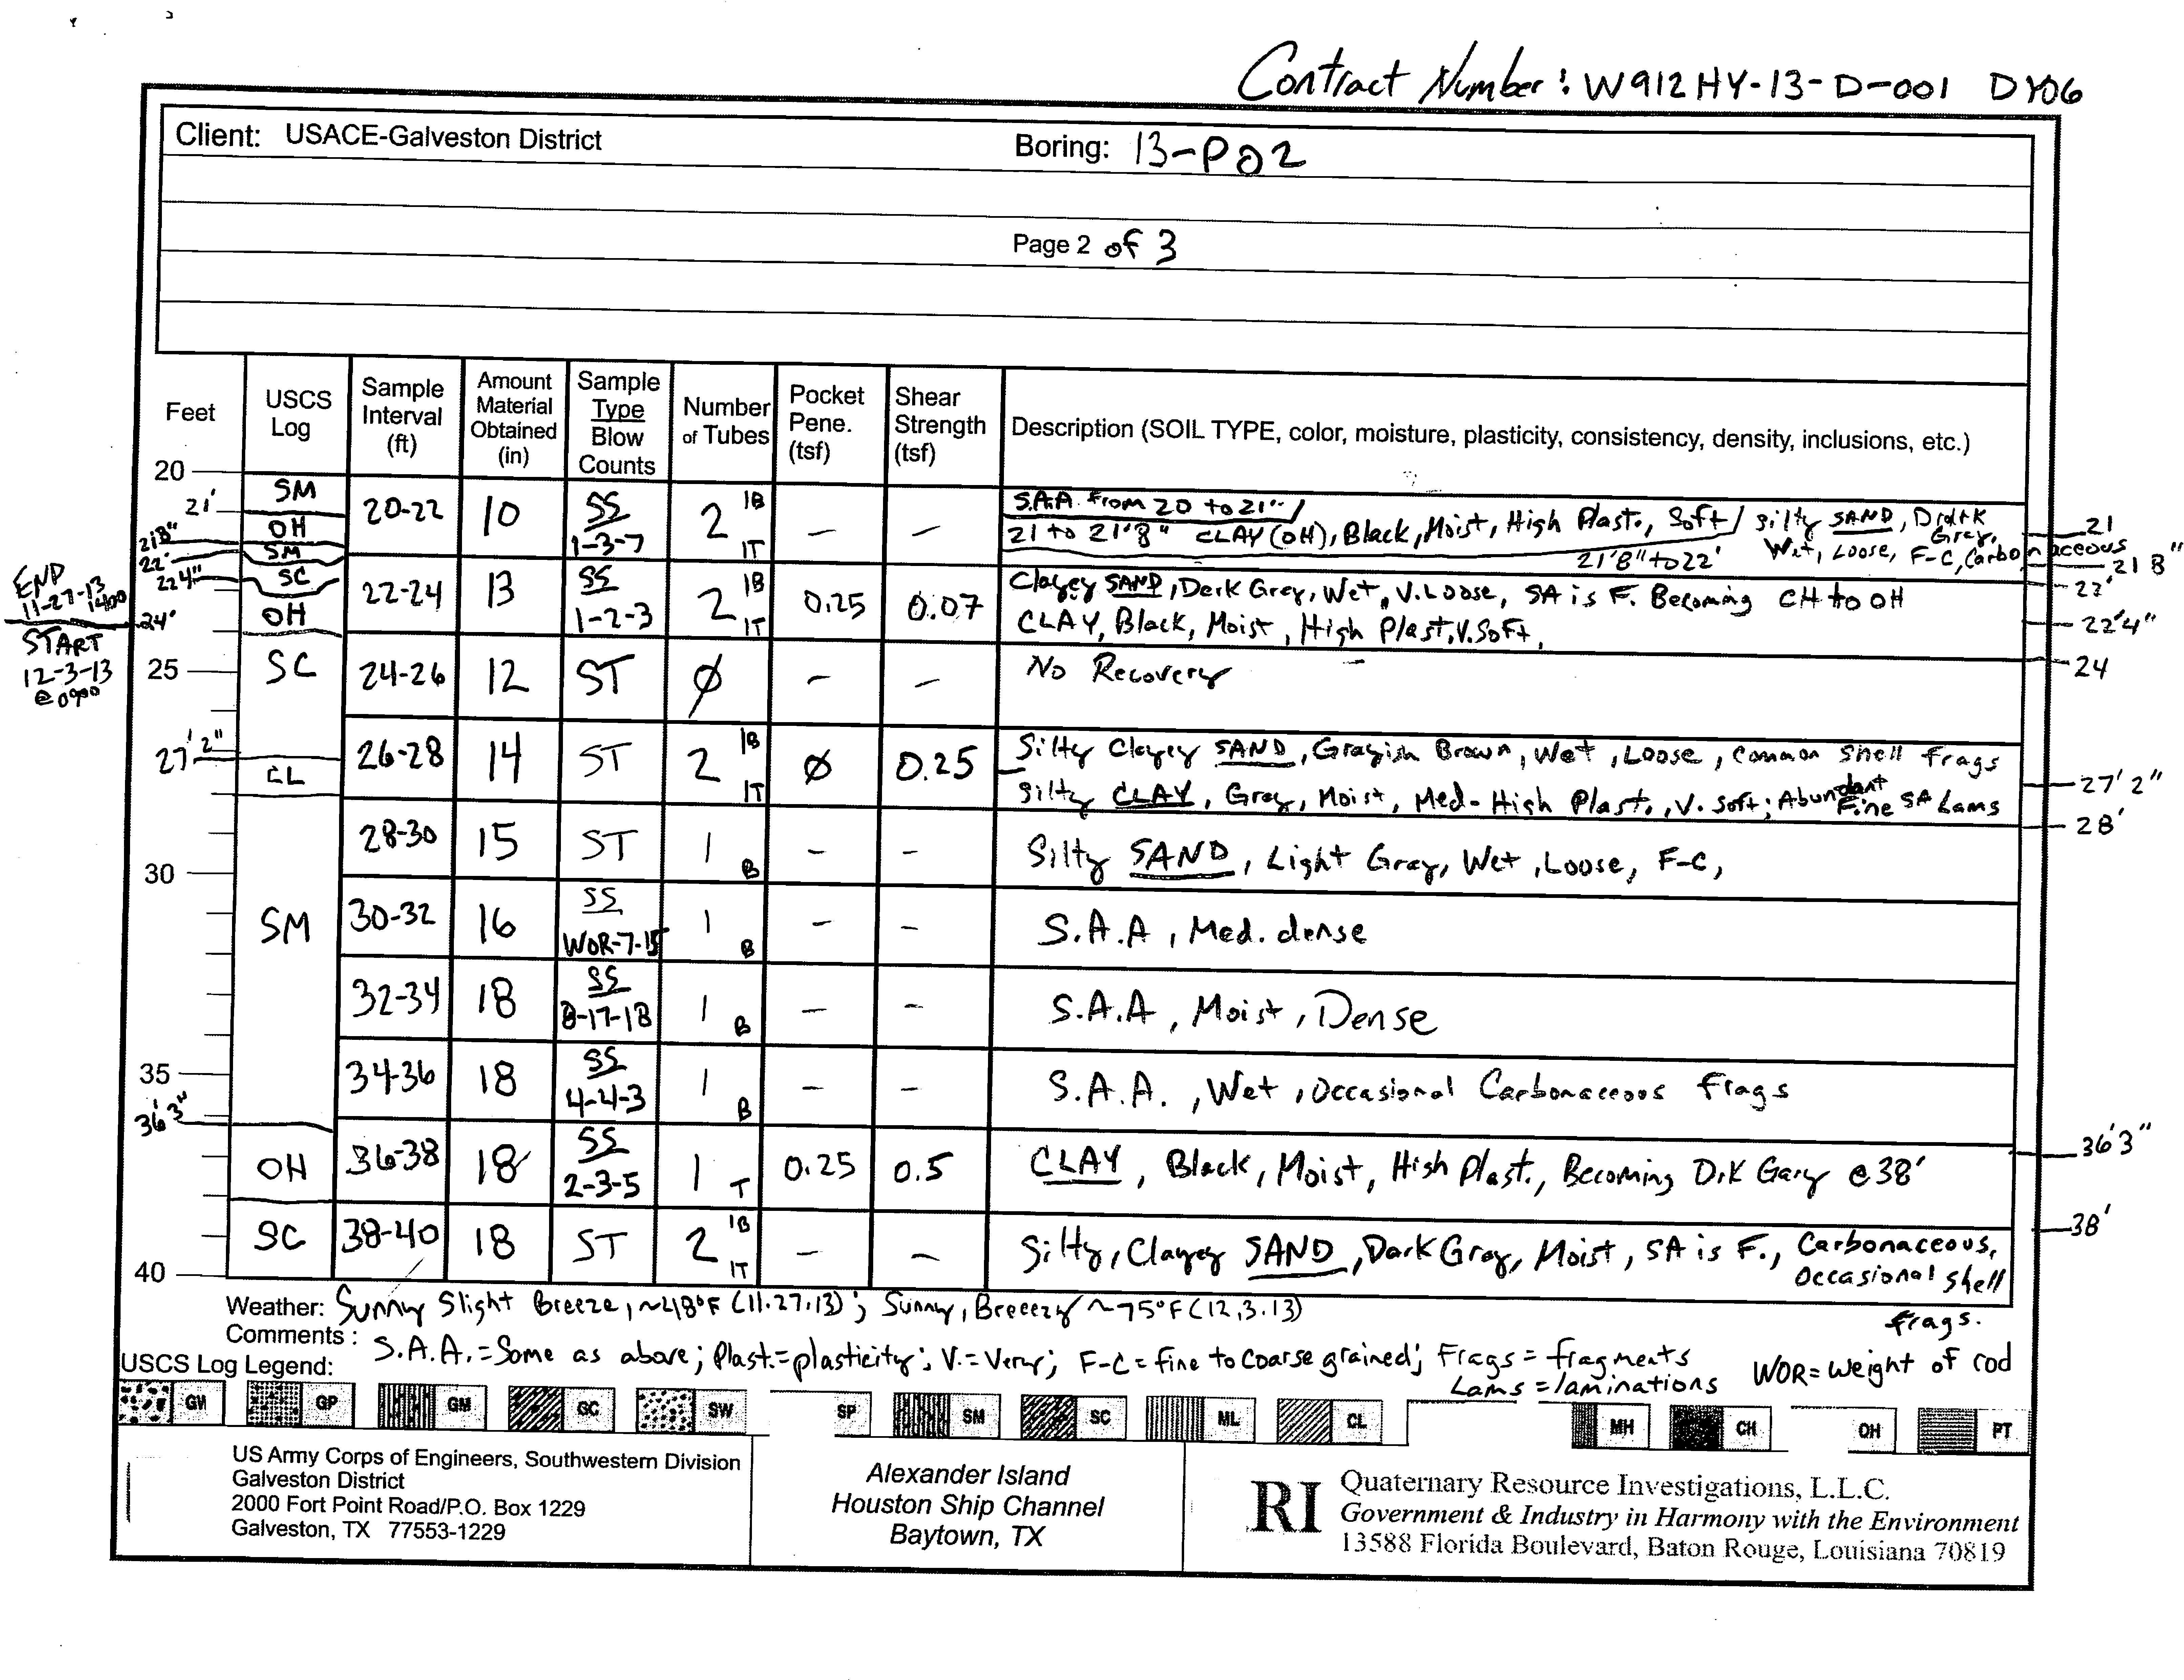 Contract Number: W912HY-13-D-001 DY06
Client: USACE-Galveston District
Boring: 13-P02
Page 2 of 3
Feet
USCS Log
Sample Interval (ft)
Amount Material Obtained (in)
Sample Type Blow Counts
Number of Tubes
Pocket Pene. (tsf)
Shear Strength (tsf)
Description (SOIL TYPE, color, moisture, plasticity, consistency, density, inclusions, etc.)
20
21'
21'8"
22'
22'4"
24'
END 11-27-13 1400
START 12-3-13 @0900
SM
OH
SM
20-22 10 SS 1-3-7 2 1B 1T – –
S.A.A. from 20 to 21'
21 to 21'8" CLAY (OH), Black, Moist, High Plast., Soft / Silty SAND, Drk Gray,
21'8" to 22' Wet, Loose, F-C, Carbonaceous
21
21 8"
22'
SC
OH
22-24 13 SS 1-2-3 2 1B 1T 0.25 0.07
Clayey SAND, Derk Grey, Wet, V. Loose, SA is F. Becoming CH to OH
CLAY, Black, Moist, High Plast, V. Soft,
22'4"
24
25
SC
24-26 12 ST Ø – – No Recovery
27'2"
CL
26-28 14 ST 2 1B 1T Ø 0.25
Silty Clayey SAND, Grayish Brown, Wet, Loose, Common Shell frags
Silty CLAY, Gray, Moist, Med-High Plast., V. Soft; Abundant Fine SA Lams
27'2"
28'
28-30 15 ST 1 B – – Silty SAND, Light Gray, Wet, Loose, F-C,
30
SM
30-32 16 SS WOR-7-15 1 B – – S.A.A, Med. dense
32-34 18 SS 8-17-18 1 B – – S.A.A, Moist, Dense
35
34-36 18 SS 4-4-3 1 B – – S.A.A., Wet, Occasional Carbonaceous frags
36'3"
36'3"
OH
36-38 18 SS 2-3-5 1 T 0.25 0.5 CLAY, Black, Moist, High Plast., Becoming Drk Gary @ 38'
38'
SC
38-40 18 ST 2 1B 1T – – Silty, Clayey SAND, Dark Gray, Moist, SA is F., Carbonaceous, Occasional shell frags.
40
Weather: Sunny Slight Breeze, ~48°F (11.27.13); Sunny, Breeezy ~75°F (12.3.13)
Comments: S.A.A.=Same as above; Plast.=plasticity; V.=Very; F-C=fine to coarse grained; Frags=fragments
Lams=laminations
WOR=weight of rod
USCS Log Legend:
GW GP GM GC SW SP SM SC ML CL MH CH OH PT
US Army Corps of Engineers, Southwestern Division
Galveston District
2000 Fort Point Road/P.O. Box 1229
Galveston, TX 77553-1229
Alexander Island
Houston Ship Channel
Baytown, TX
RI
Quaternary Resource Investigations, L.L.C.
Government & Industry in Harmony with the Environment
13588 Florida Boulevard, Baton Rouge, Louisiana 70819